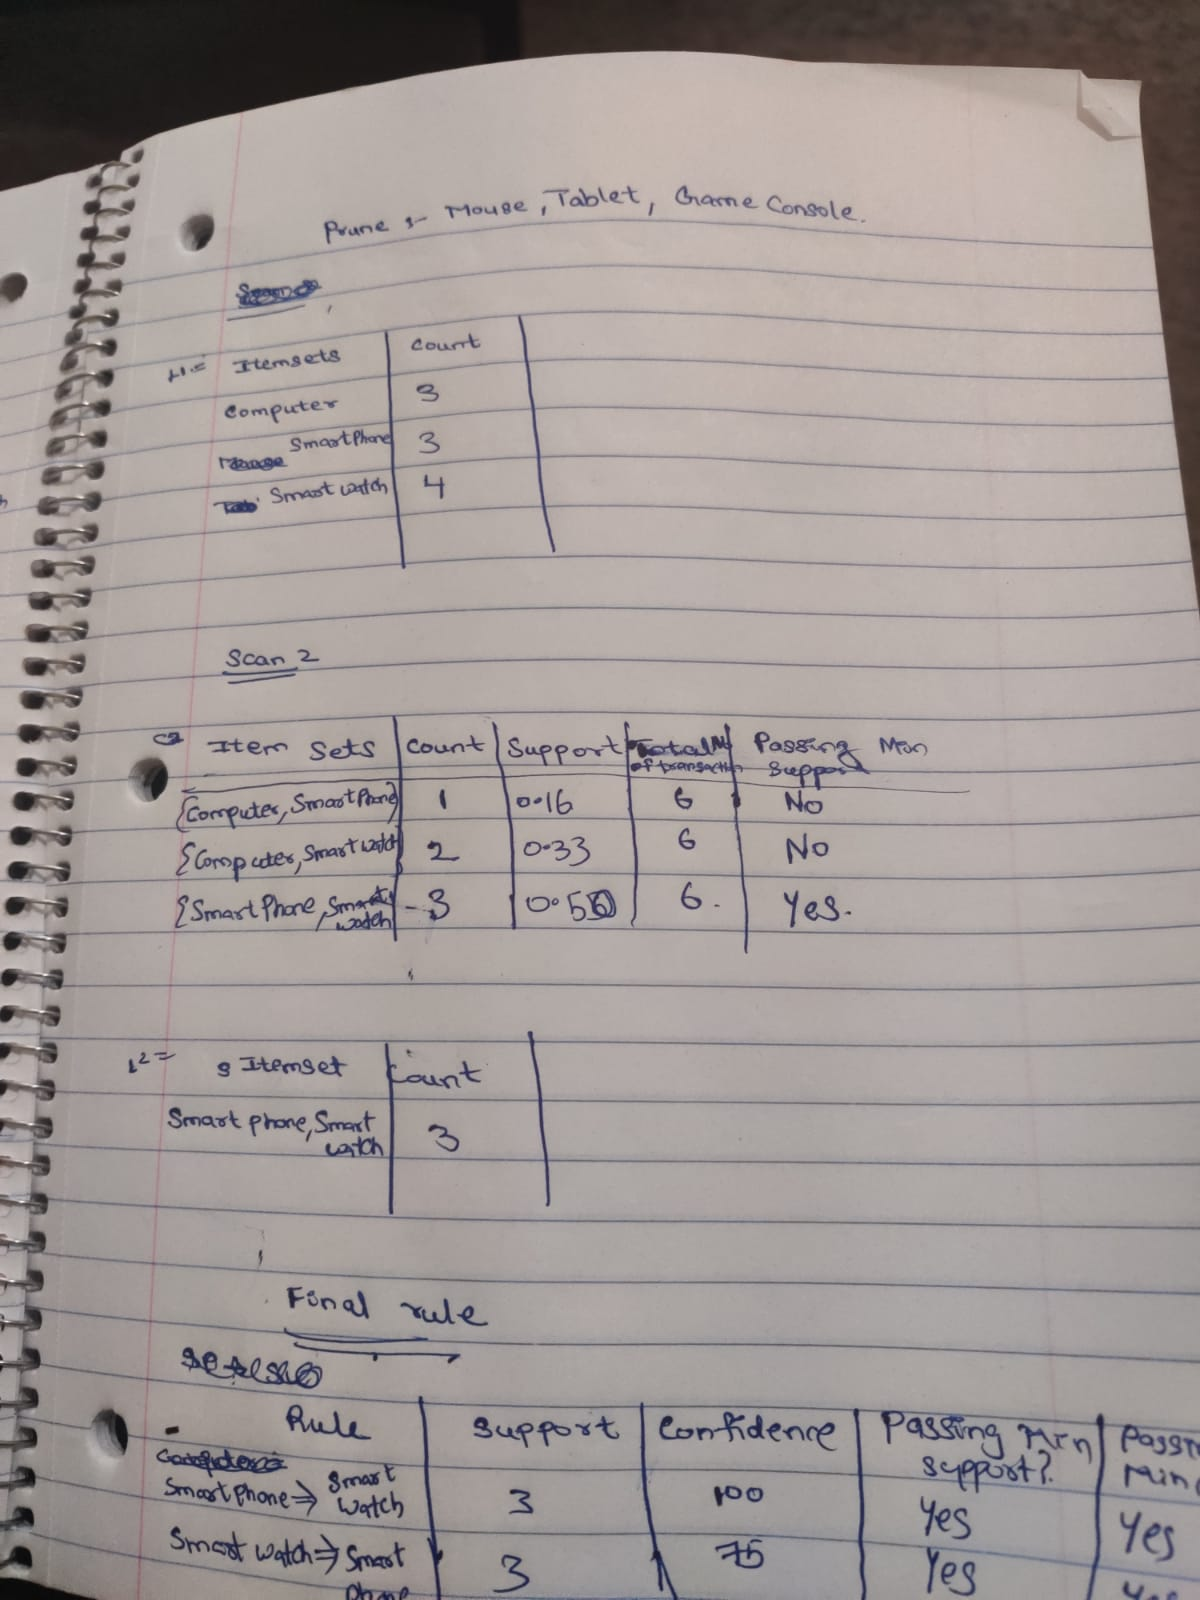 Prune :- Mouse, Tablet, Game Console.
L1 = Itemsets Count
Computer 3
SmartPhone 3
Smart watch 4
Scan 2
C2 Item Sets Count Support Total No of transaction Passing Min Support
{Computer, SmartPhone} 1 0.16 6 No
{Computer, Smart watch} 2 0.33 6 No
{SmartPhone, Smart watch - 3 0.50 6. Yes.
L2 = Itemset Count
Smart phone, Smart watch 3
Final rule
Rule Support Confidence Passing Min support?
Smart Phone ⇒ Smart Watch 3 100 Yes Yes
Smart watch ⇒ Smart phone 3 75 Yes